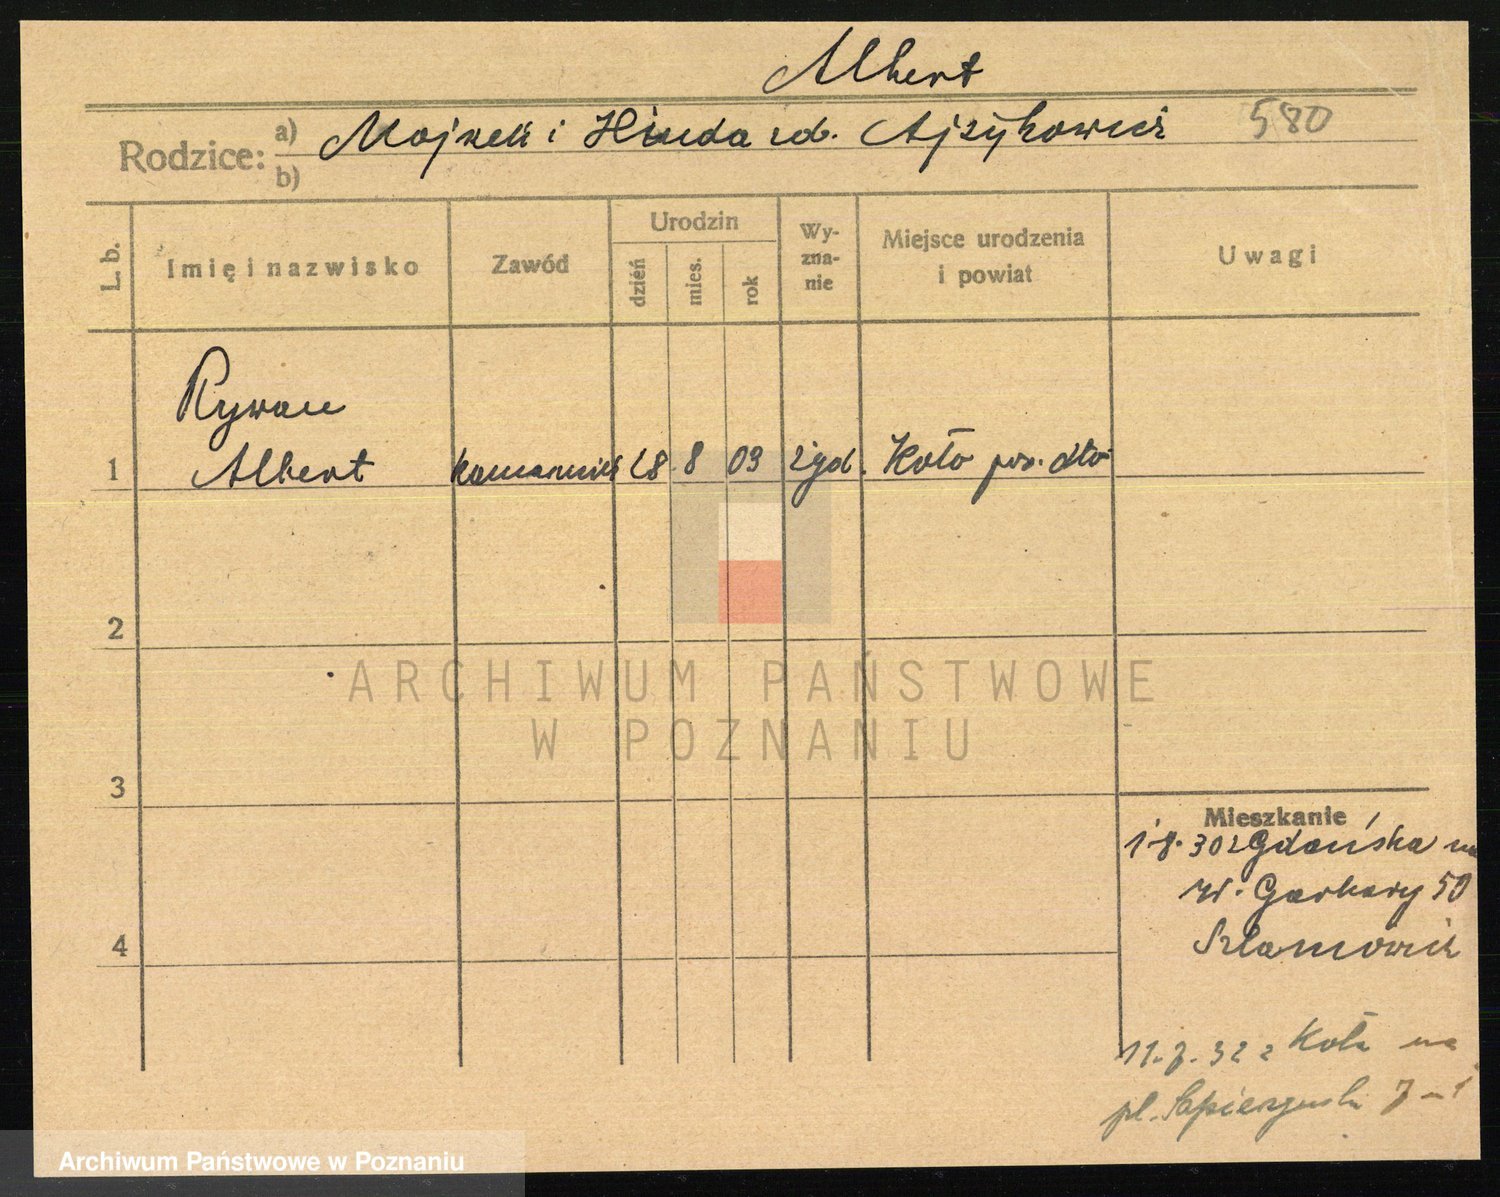 Albert
Rodzice: a) Mojzek i Hinda zd. Ajzykowicz 580
b)
L. b. Imię i nazwisko Zawód Urodzin dzień mies. rok Wy-zna-nie Miejsce urodzenia i powiat Uwagi
Rywan
1 Albert 28 8 09 żyd. Koło pow. dto
2
ARCHIWUM PAŃSTWOWE
W POZNANIU
3
Mieszkanie
1.8.30 z Gdańska na
W. Garbary 50
Szlamowicz
4
11.7.32 z Koła na
pl. Sapieżyński 7
Archiwum Państwowe w Poznaniu